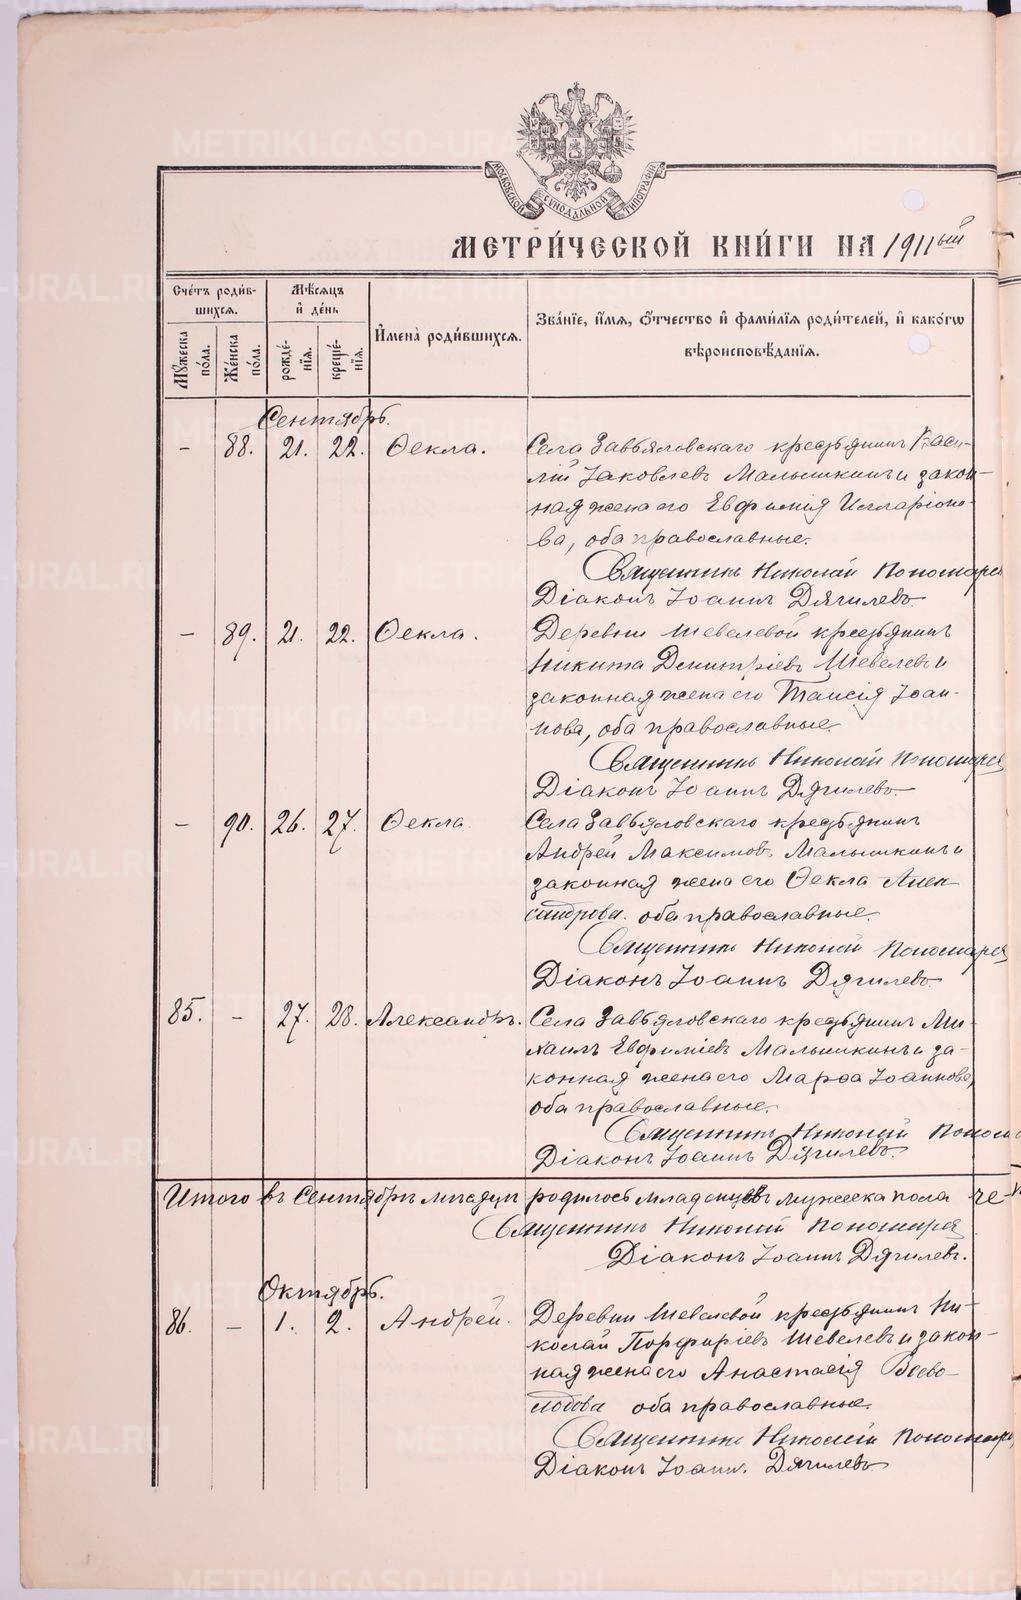 МОСКОВСКОЙ СѴНОДАЛЬНОЙ ТИПОГРАФІИ
МЕТРИ́ЧЕСКОЙ КНИ́ГИ НА 1911ый
Сче́тъ роди́в-
шихся.
Мѣ́сяцъ
и҆ де́нь
И҆мена̀ роди́вшихся.
Зва́ніе, и҆́мя, ѻ҆́тчество и҆ фами́лія роди́телей, и҆ како́гѡ
вѣроисповѣ́данія.
Мꙋ́жеска
по́ла.
Же́нска
по́ла.
рожде́-
нія.
креще́-
нія.
Сентябрь.
– 88. 21. 22. Ѳекла. Села Завьяловскаго крестьянинъ Васи-
лій Іаковлевъ Малышкинъ и закон-
ная жена его Евфимія Илларіоно-
ва, оба православные.
Священникъ Николай Пономарев
Діаконъ Іоаннъ Дягилевъ
– 89. 21. 22. Ѳекла. Деревни Шевелевой крестьянинъ
Никита Димитріевъ Шевелевъ и
законная жена его Таисія Іоан-
нова, оба православные.
Священникъ Николай Пономарев
Діаконъ Іоаннъ Дягилевъ
– 90. 26. 27. Ѳекла Села Завьяловскаго крестьянинъ
Андрей Максимовъ Малышкинъ и
законная жена его Ѳекла Алек-
сандрова. оба православные.
Священникъ Николай Пономарев
Діаконъ Іоаннъ Дягилевъ
85. – 27. 28. Александръ. Села Завьяловскаго крестьянинъ Ми-
хаилъ Евфиміевъ Малышкинъ и за-
конная жена его Марѳа Іоаннова,
оба православные.
Священникъ Николай Поном
Діаконъ Іоаннъ Дягилевъ.
Итого въ Сентябрѣ мѣсяцѣ родилось младенцевъ мужеска пола че-
Священникъ Николай Пономарев
Діаконъ Іоаннъ Дягилевъ.
Октябрь.
86. – 1. 2. Андрей. Деревни Шевелевой крестьянинъ Ни-
колай Порфиріевъ Шевелевъ и закон-
ная жена его Анастасія Всево-
лодова оба православные.
Священникъ Николай Пономарев
Діаконъ Іоаннъ. Дягилевъ